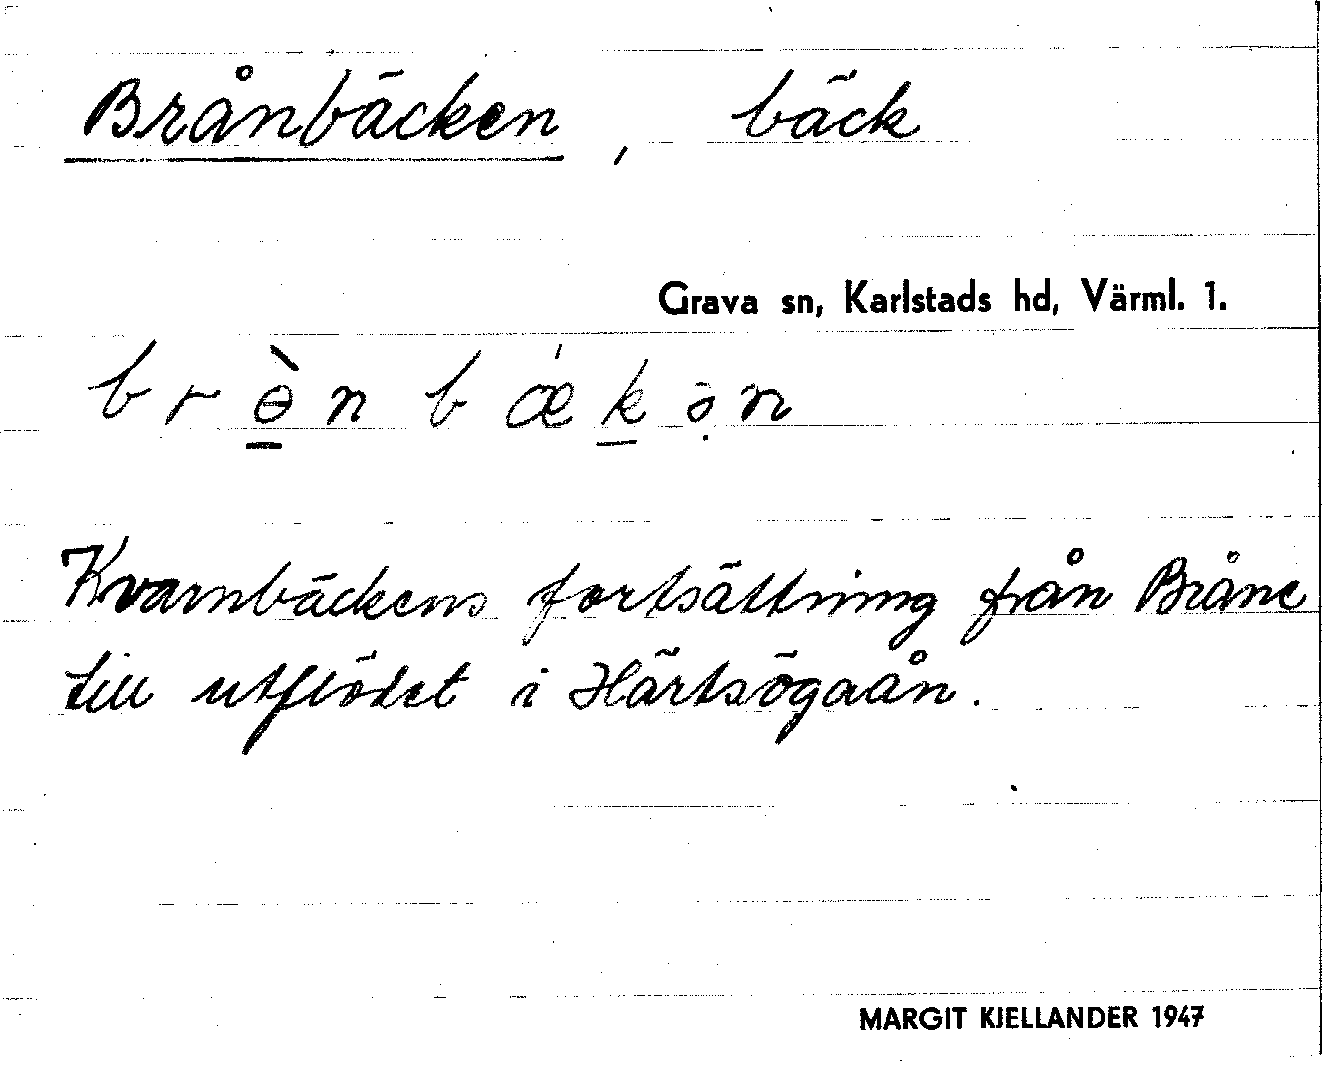 Brånbäcken, bäck
Grava sn, Karlstads hd, Värml. 1.
brɵ̲̀nbǽk̲ən
Kvarnbäckens fortsättning från Bråne
till utflödet i Härtsögaån.
MARGIT KJELLANDER 1947